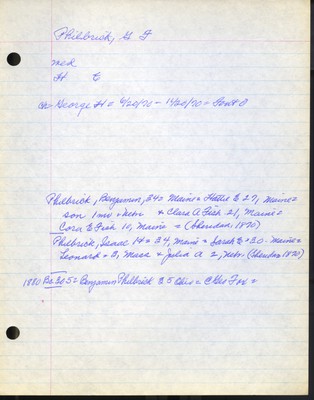 Philbrick, G F
med
H E
George H = 4/20/70 - 11/20/70 =
Philbrick, Benjamin, 34 = Maine = Hattie E 27, Maine =
son 1 mo = Nebr + Clara A Fish 21, Maine =
Cora E Fish 10, Maine = (Sheridan 1870)
Philbrick, Isaac H = 34, Maine = Sarah E = 30 - Maine =
Leonard = 3, Mass + Julia A 2, Nebr. (Sheridan 1870)
1880 = Benjamin Philbrick 25 Ohio =